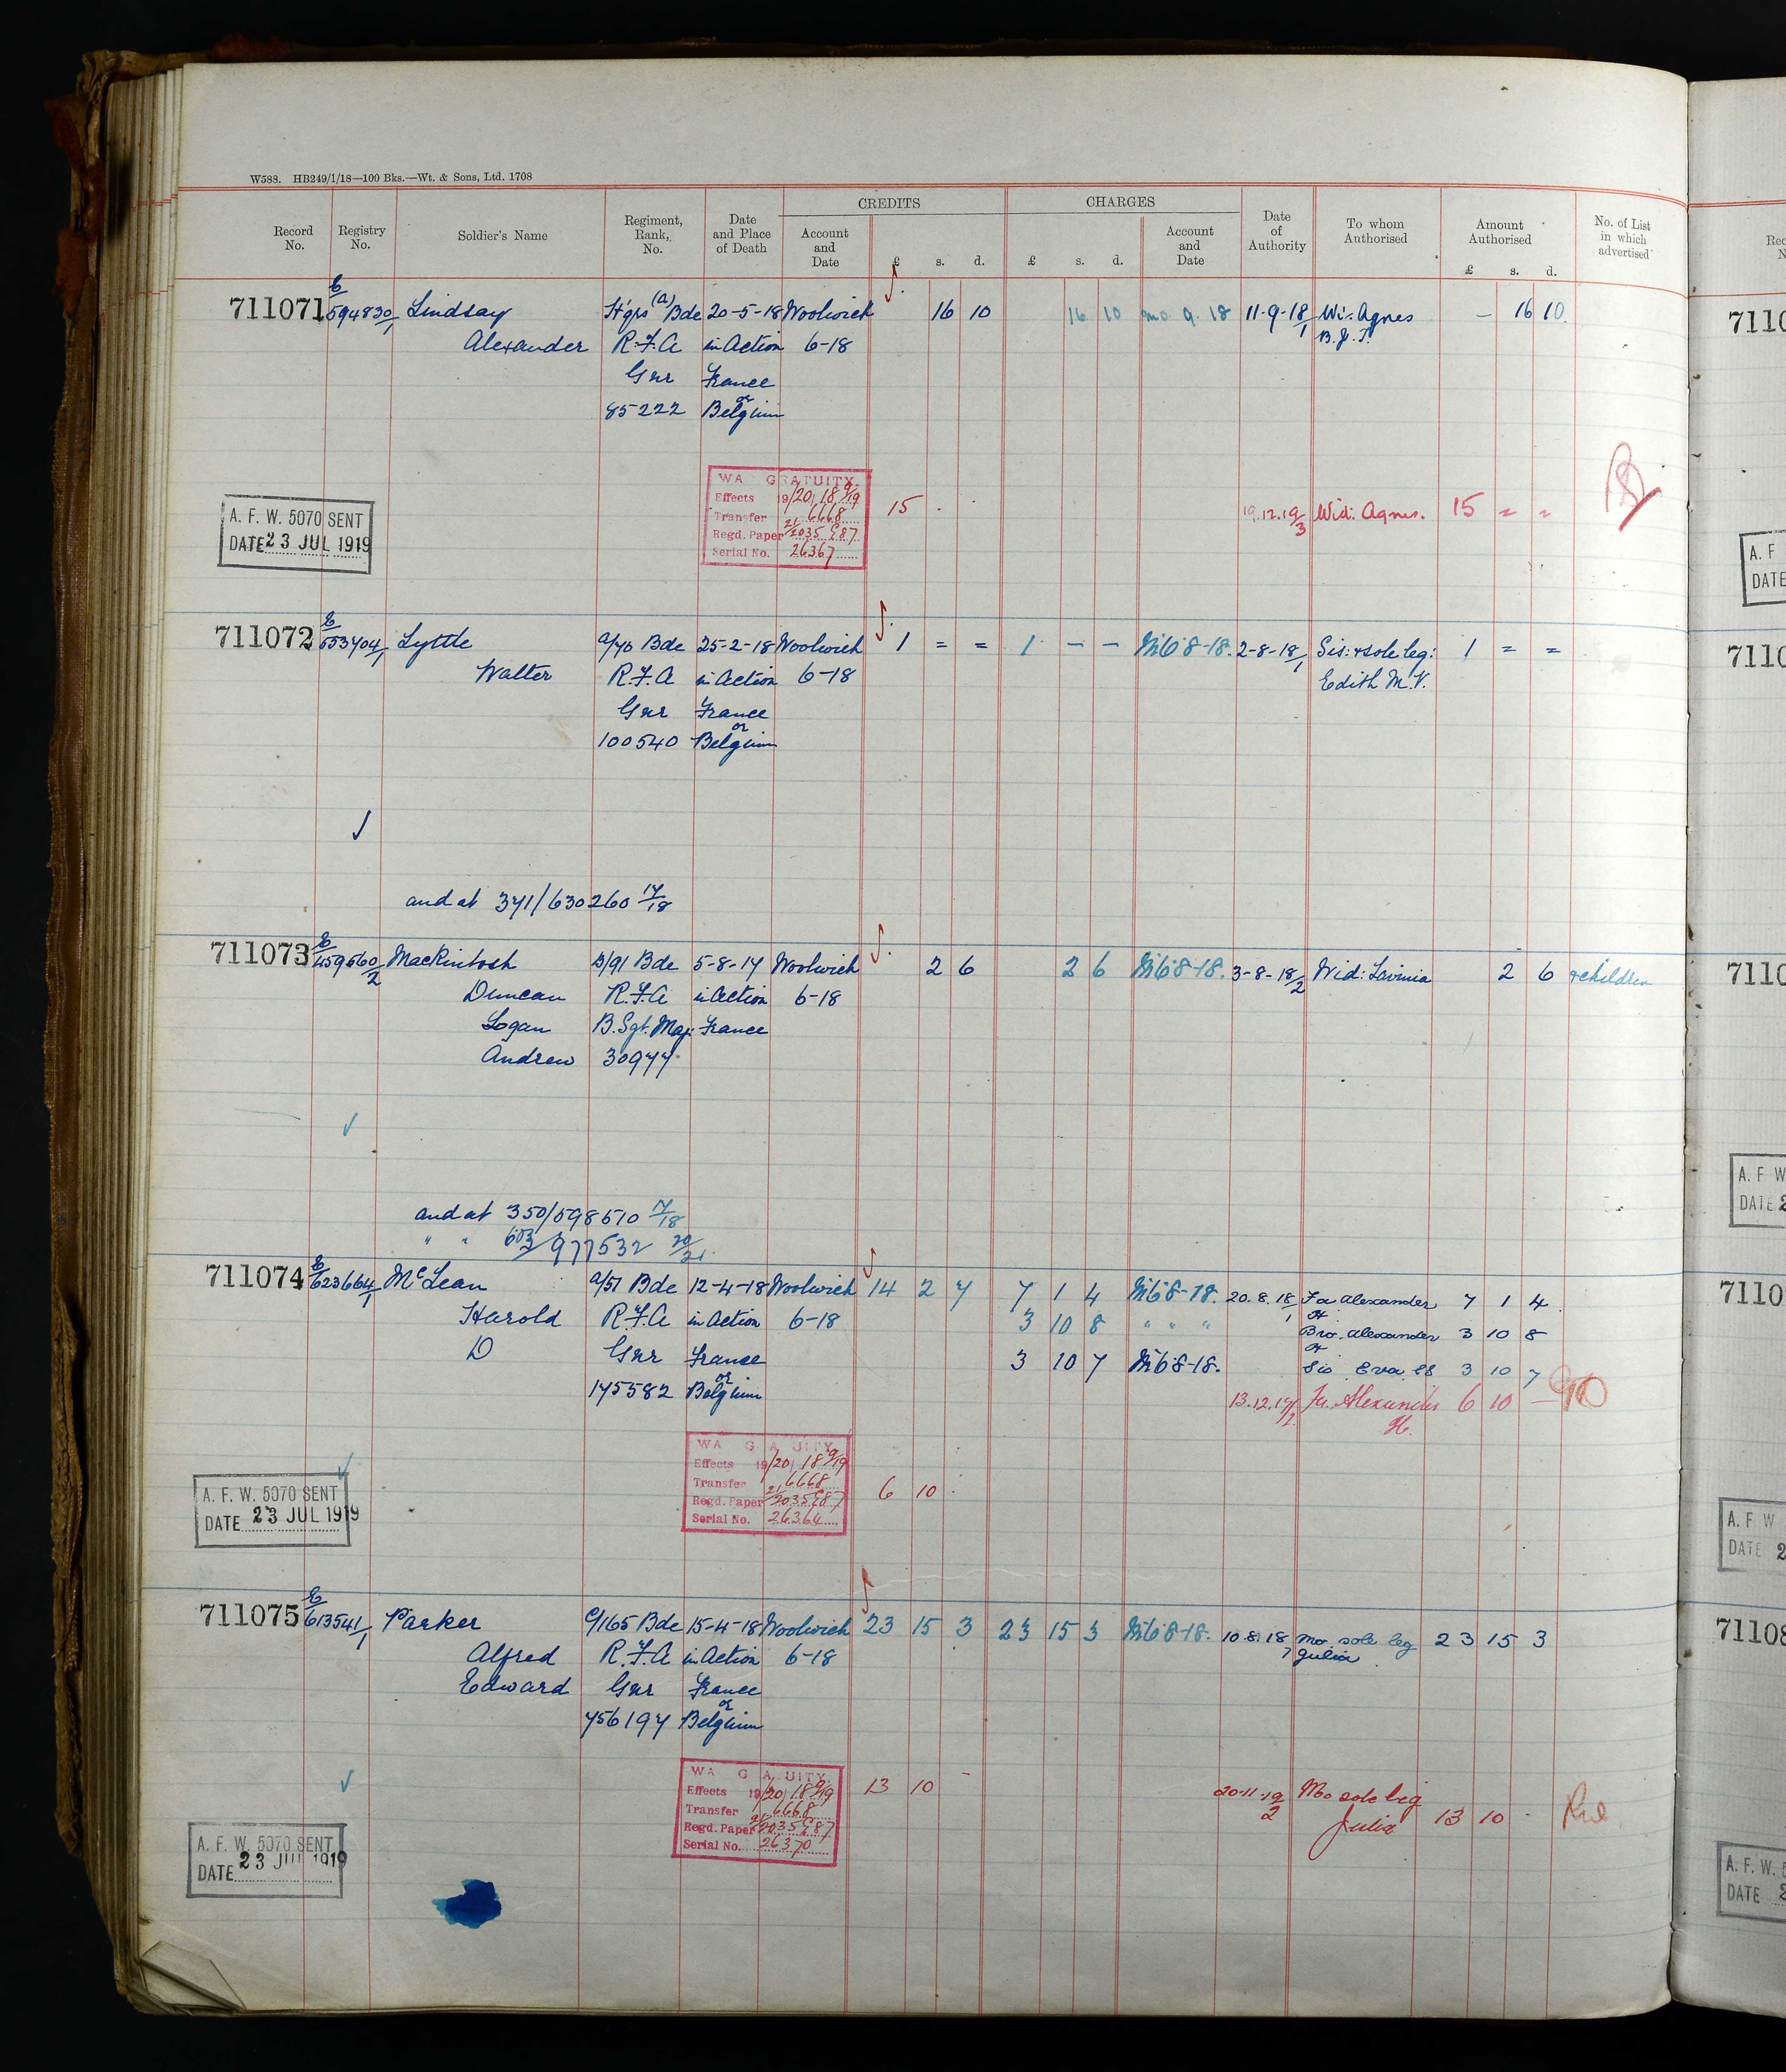 W588. HB249/1/18—100 Bks.—Wt. & Sons, Ltd. 1708
Record No. Registry No. Soldier's Name Regiment, Rank, No. Date and Place of Death CREDITS Account and Date £ s. d. CHARGES £ s. d. Account and Date Date of Authority To whom Authorised Amount Authorised £ s. d. No. of List in which advertised
711071 E/594830/1 Lindsay H'qrs (A) Bde 20-5-18 Woolwich 16 10 16 10 mo 9. 18 11-9-18/1 Wi: Agnes – 16 10
Alexander R.F.A in Action 6-18 B.J.T.
Gnr France
85222 or Belgium
WA GRATUITY
Effects 19/20/18 9/19
Transfer 6668
Regd. Paper 21/2035 E87
Serial No. 26367
15 . 19.12.19/3 Wid: Agnes. 15 = =
A. F. W. 5070 SENT
DATE 23 JUL 1919
711072 E/553404/1 Lyttle A/70 Bde 25-2-18 Woolwich 1 = = 1 – – 8-18. 2-8-18/1 Sis: & sole leg: 1 = =
Walter R.F.A in Action 6-18 Edith M.V.
Gnr France
100540 or Belgium
and at 371/630260 17/18
711073 E/459560/2 Mackintosh B/91 Bde 5-8-17 Woolwich 2 6 2 6 8-18. 3-8-18/2 Wid: Lavinia 2 6 & children
Duncan R.F.A in Action 6-18
Logan B.Sgt.Maj. France
Andrew 30977
and at 350/598510 17/18
" " 603/977532 20/21
711074 E/623664/1 McLean A/51 Bde 12-4-18 Woolwich 14 2 7 7 1 4 8-18. 20.8.18/1 Fa Alexander H 7 1 4
Harold R.F.A in Action 6-18 3 10 8 " " " Bro. Alexander H 3 10 8
D Gnr France 3 10 7 8-18. Sis Eva 3 10 7
175582 or Belgium 13.12.19 Fa. Alexander H. 6 10 –
WA G A UITY
Effects 19/20/18 9/19
Transfer 6668
Regd. Paper 21/2035 E87
Serial No. 26364
6 10
A. F. W. 5070 SENT
DATE 23 JUL 1919
711075 E/613541/1 Parker C/165 Bde 15-4-18 Woolwich 23 15 3 23 15 3 8-18. 10.8.18/7 Mo. sole leg 23 15 3
Alfred R.F.A in Action 6-18 Julia
Edward Gnr France
756197 or Belgium
WA G A UITY
Effects 19/20/18 9/19
Transfer 6668
Regd. Paper 21/2035 E87
Serial No. 26370
13 10 – 20.11.19/2 Mo sole leg Julia 13 10
A. F. W. 5070 SENT
DATE 23 JUL 1919